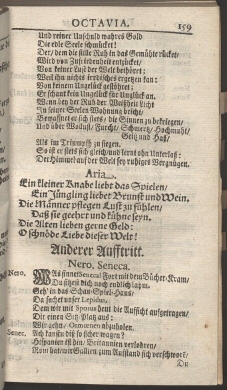 OCTAVIA. 159
Und reiner Unschuld wahres Gold
Die edle Seele schmücket!
Der/ dem die stille Ruh in das Gemühte rücket/
Wird von Zufriedenheit entzücket/
Von keiner Lust der Welt bethöret;
Weil ihn nichts irrdisches ergetzen kan:
Von keinem Unglück gestöhret;
Er schauet kein Unglück für Unglück an.
Wenn bey der Ruh der Weißheit Licht
In seiner Seelen Wohnung bricht/
Bewaffnet er sich stets/ die Sinnen zu bekriegen/
Und über Wollust/ Furcht/ Schmertz/ Hochmuht/
Geitz und Haß/
Als im Triumpff zu siegen.
So ist er stets sich gleich und lernt ohn Unterlaß:
Der Himmel auf der Welt sey ruhiges Vergnügen.
Aria
Ein kleiner Knabe liebt das Spielen/
Ein Jüngling lieber Brunst und Wein.
Die Männer pflegen Lust zu fühlen/
Daß sie geehrt und kühne seyn.
Die Alten lieben gerne Geld:
O schnöde Liebe dieser Welt!
Anderer Aufftritt.
Nero, Seneca.
Nero. Was sinnet Seneca! Fort mit dem Bücher-Kram/
Du sitzest dich noch endlich lahm.
Geh' in das Schau-Spiel-Haus/
Da suchet unser Lepidus,
Dem wir mit Sporus heut die Aufsicht aufgetragen/
Dir einen Sitz-Platz aus:
Wir gehn/ Octavien abzuholen.
Senec. Ach kanstu diß so sicher wagen?
Hispanien ist hin/ Britannien verlohren/
Rom hat mit Gallien zum Aufstand sich verschworen/
Du